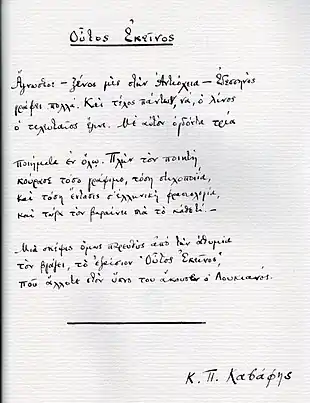 Οὗτος Ἐκεῖνος
Ἄγνωστος – ξένος μὲς στὴν Ἀντιόχεια – Ἐδεσσηνὸς
γράφει πολλά. Καὶ τέλος πάντων, νά, ὁ λίνος
ὁ τελευταῖος ἔγινε. Μὲ αὐτὸν ὀγδόντα τρία
ποιήματα ἐν ὅλῳ. Πλὴν τὸν ποιητὴ
κούρασε τόσο γράψιμο, τόση στιχοποιΐα,
καὶ τόση ἔντασις σ' ἑλληνικὴ φρασιολογία,
καὶ τώρα τὸν βαραίνει πιὰ τὸ κάθε τί. –
Μιὰ σκέψις ὅμως παρευθὺς ἀπὸ τὴν ἀθυμία
τὸν βγάζει, τὸ ἐξαίσιον Οὗτος Ἐκεῖνος,
ποὺ ἄλλοτε στὸν ὕπνο του ἄκουσεν ὁ Λουκιανός.
Κ. Π. Καβάφης